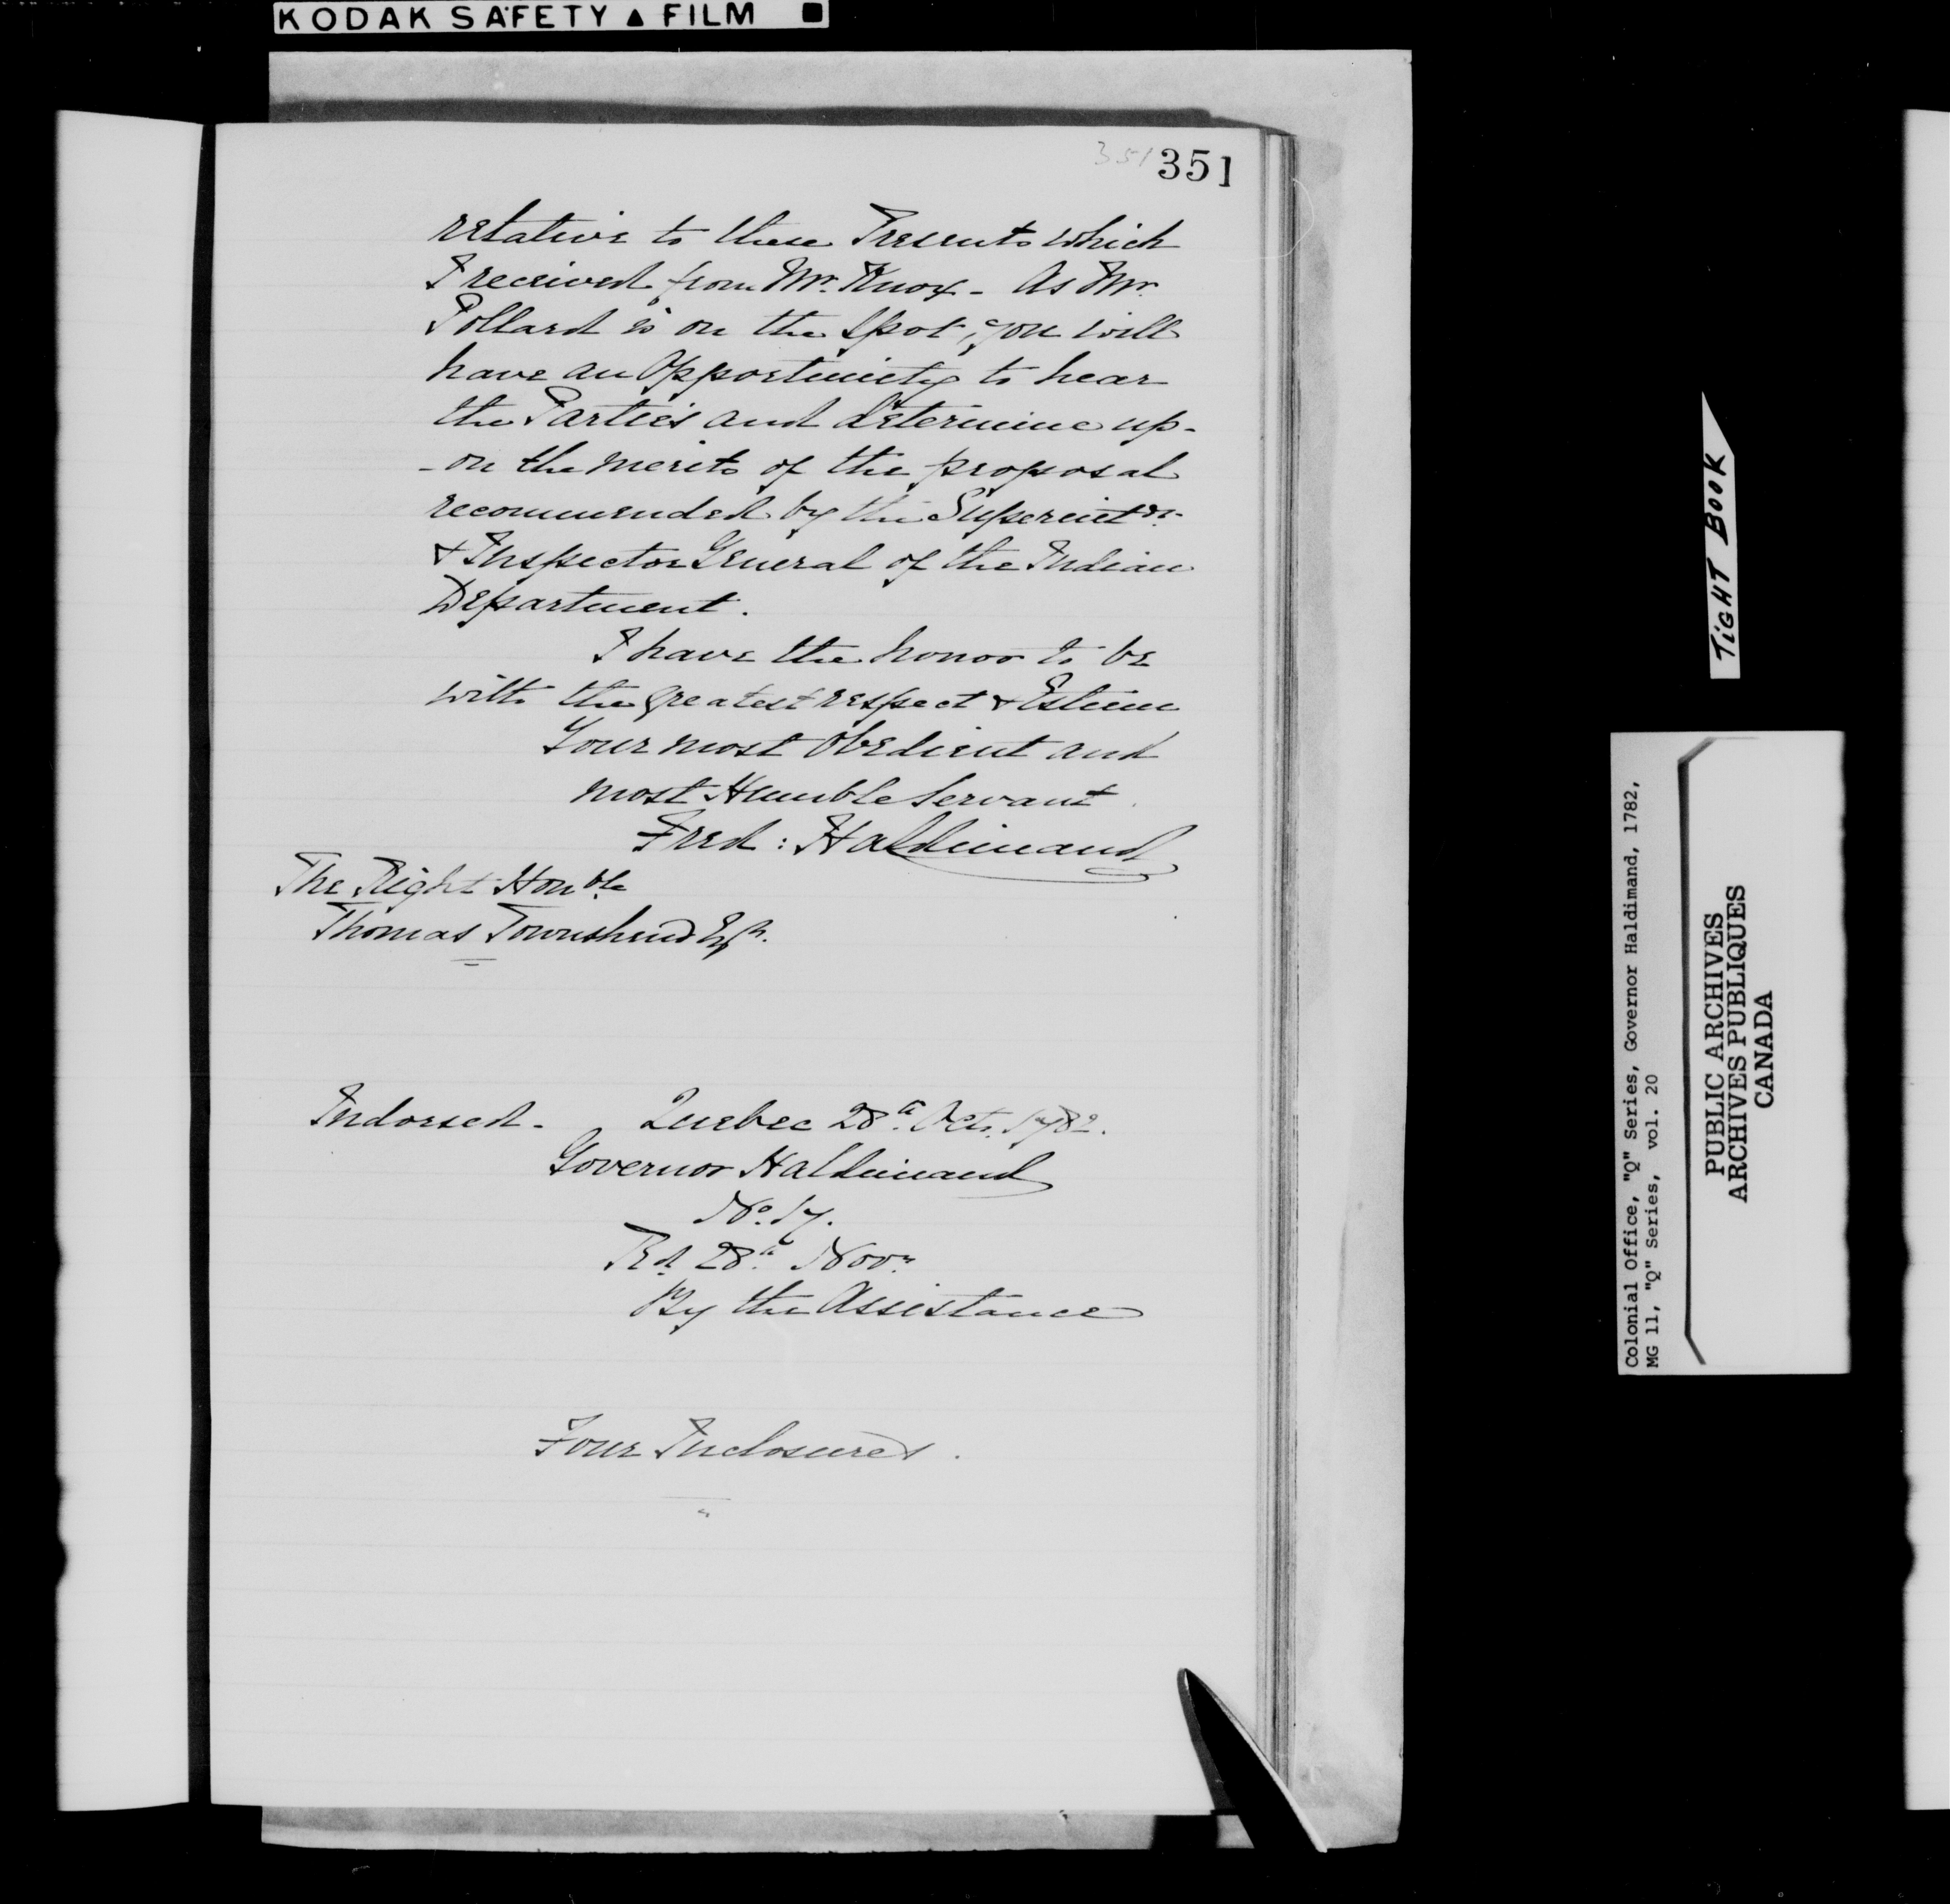 KODAK SAFETY ▲ FILM ■
351 351
relative to these Presents which
I received from Mr. Knox - As Mr.
Pollard is on the spot, you will
have an Opportunity to hear
the Parties and determine up-
-on the merits of the proposal
recommended by the Superint dt.
& Inspector General of the Indian
Department.
I have the honor to be
with the greatest respect & Esteem
Your most Obedient and
most Humble Servant
Fred: Haldimand
The Right Honble
Thomas Townshend Esqr.
Indorsed - Quebec 28th Octr. 1782.
Governor Haldimand
No. 17.
Rd 28th Novr
By the Assistance
Four Inclosures.
TIGHT BOOK
Colonial Office, "Q" Series, Governor Haldimand, 1782,
MG 11, "Q" Series, vol. 20
PUBLIC ARCHIVES
ARCHIVES PUBLIQUES
CANADA